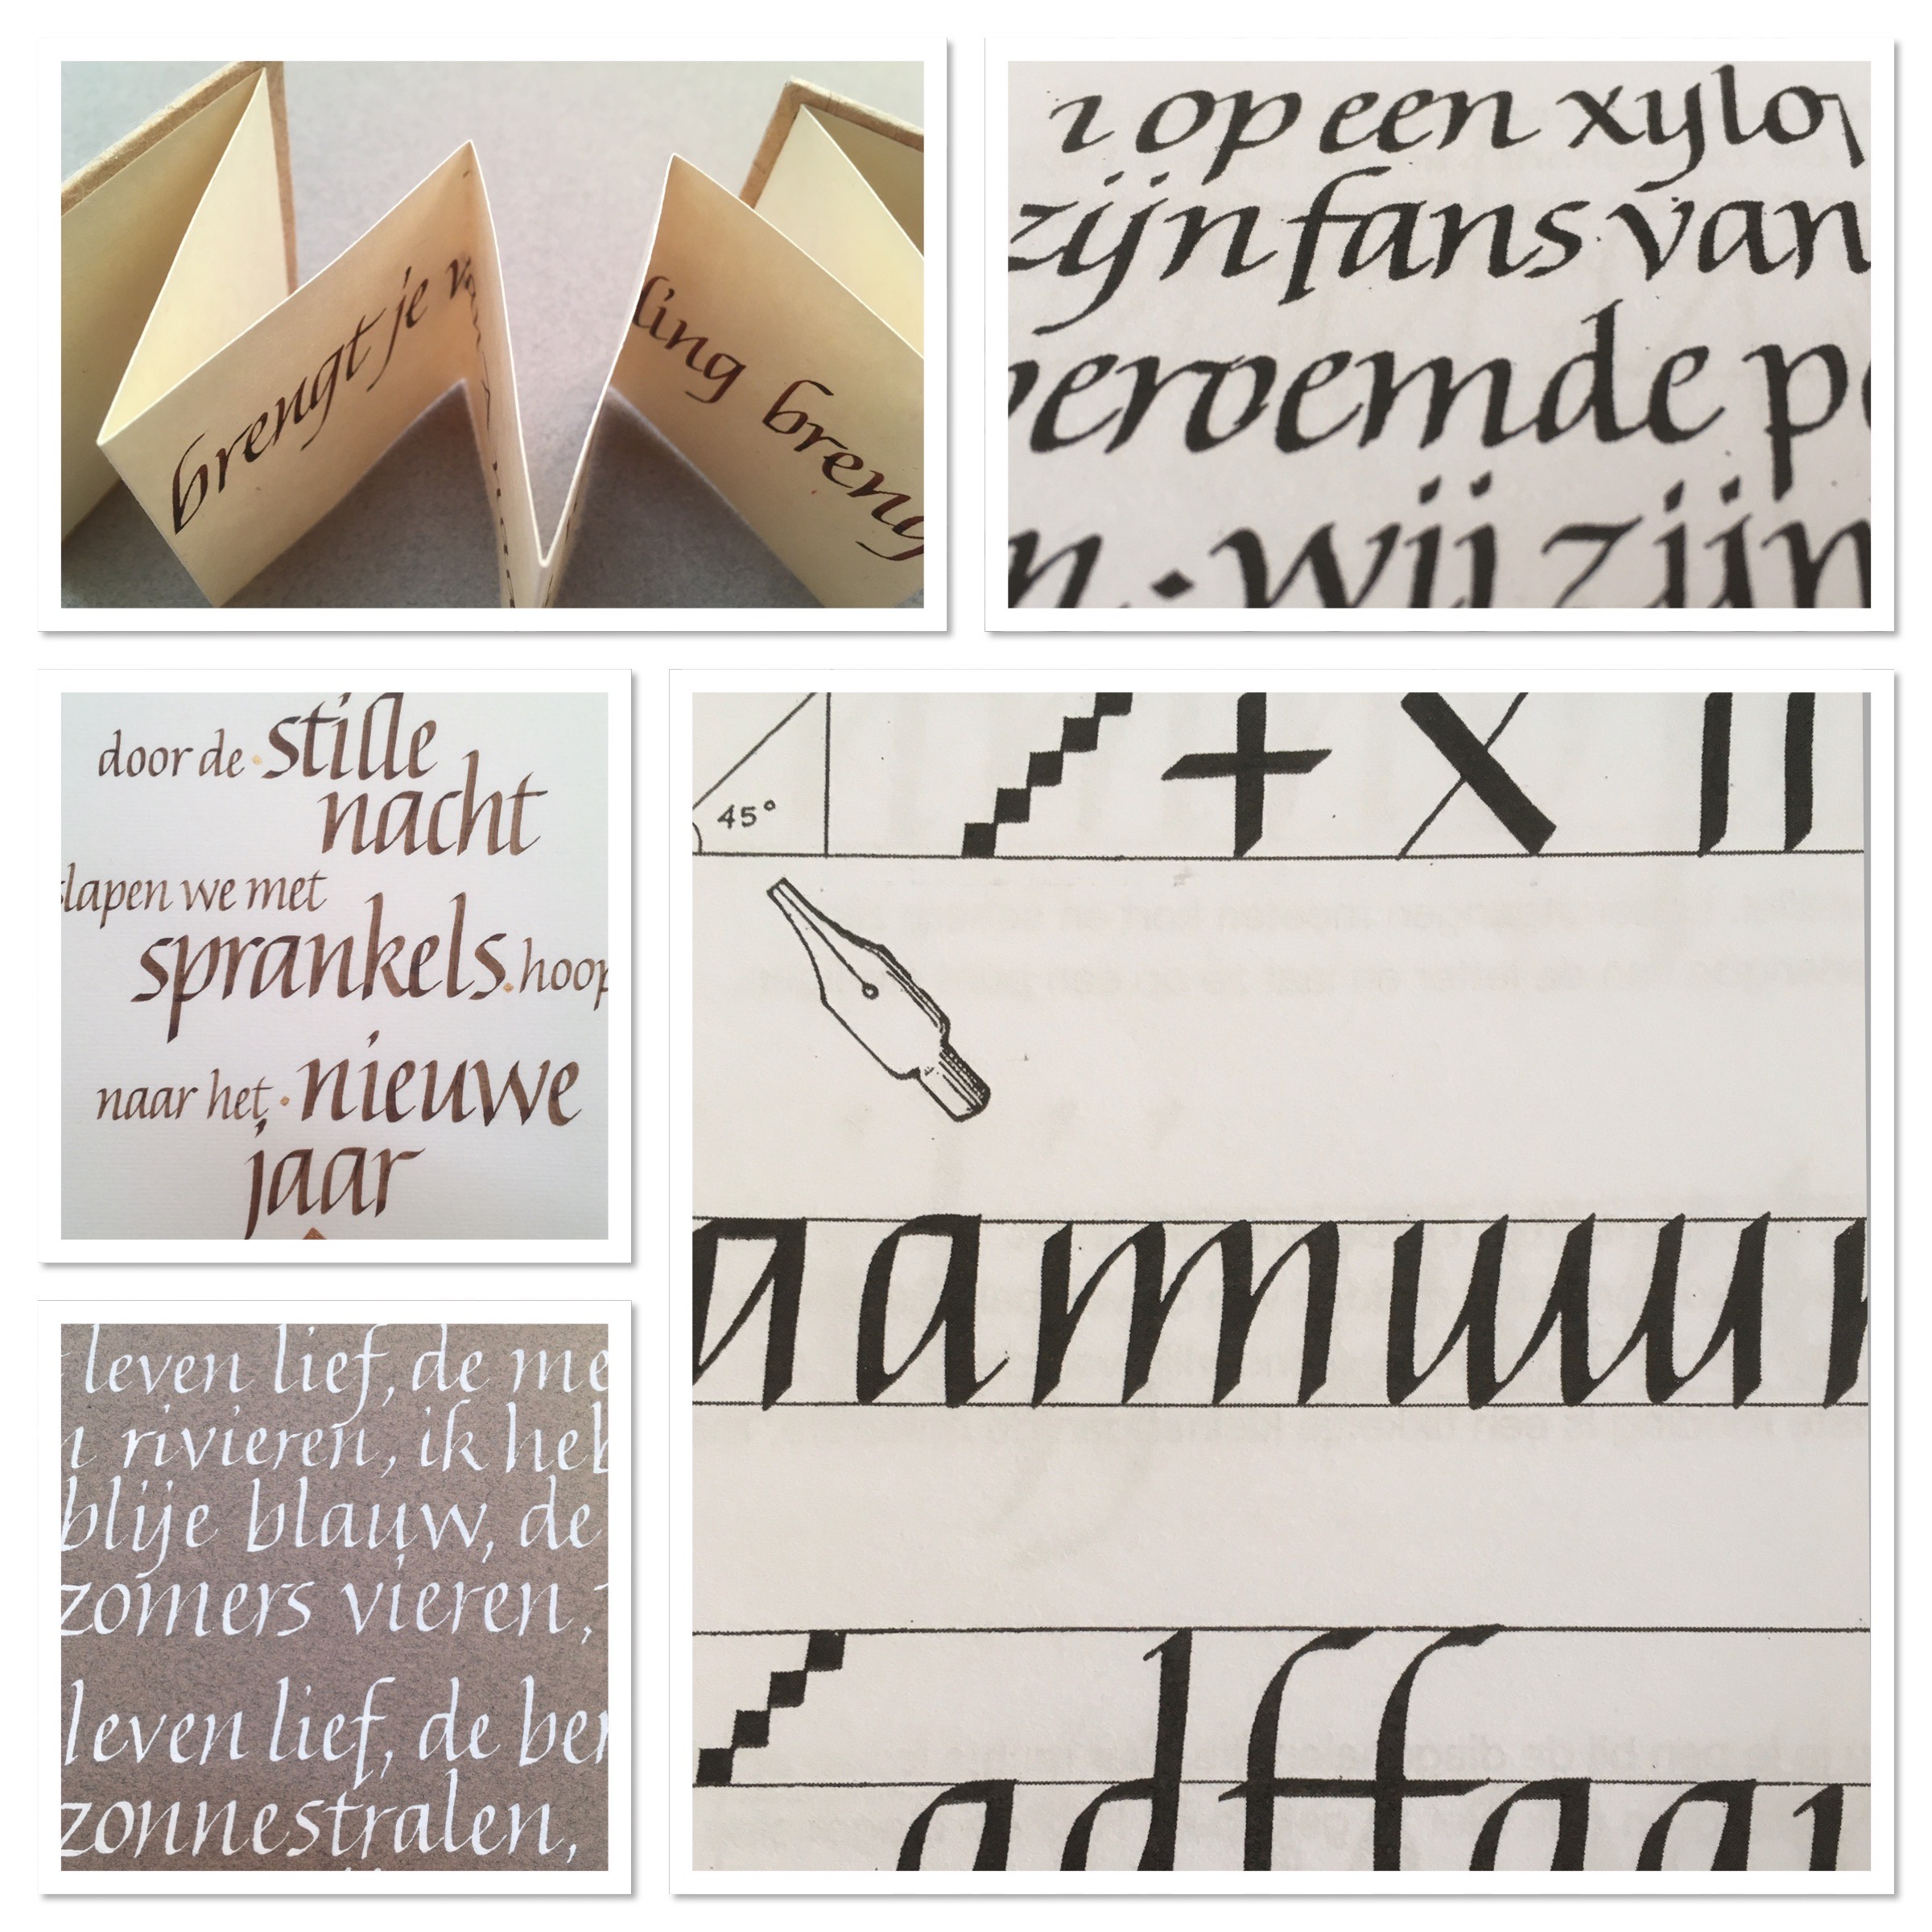 brengt je
ling breng
op een xylo
zijn fans van
beroemde
wij zijn
door de stille
nacht
slapen we met
sprankels hoop
naar het nieuwe
jaar
leven lief, de me
rivieren, ik heb
blije blauw, de
zomers vieren,
leven lief, de ber
zonnestralen,
45°
a a m u u
a d f f a a